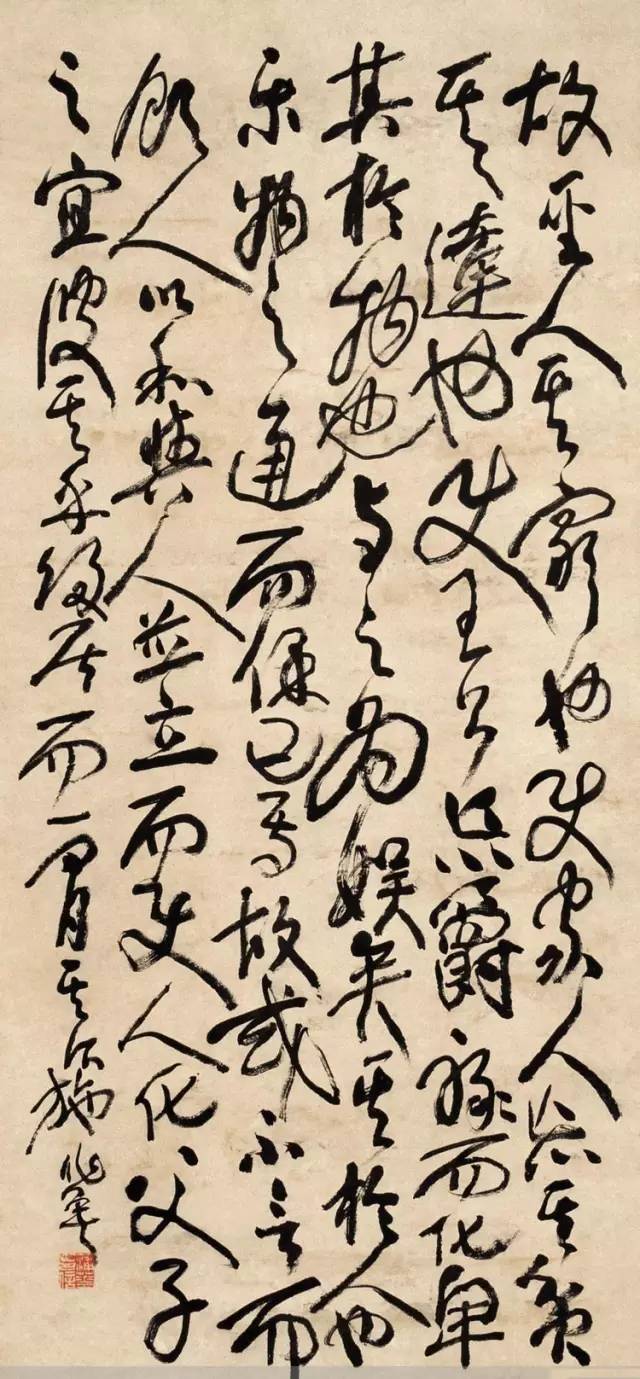 故聖人其窮也使家人忘其貧
其達也使王公忘爵祿而化卑
其於物也與之為娛矣其於人也
樂物之通而保己焉故或不言而
飲人以和與人並立而使人化父子
之宜彼其乎歸居而一閒其所施